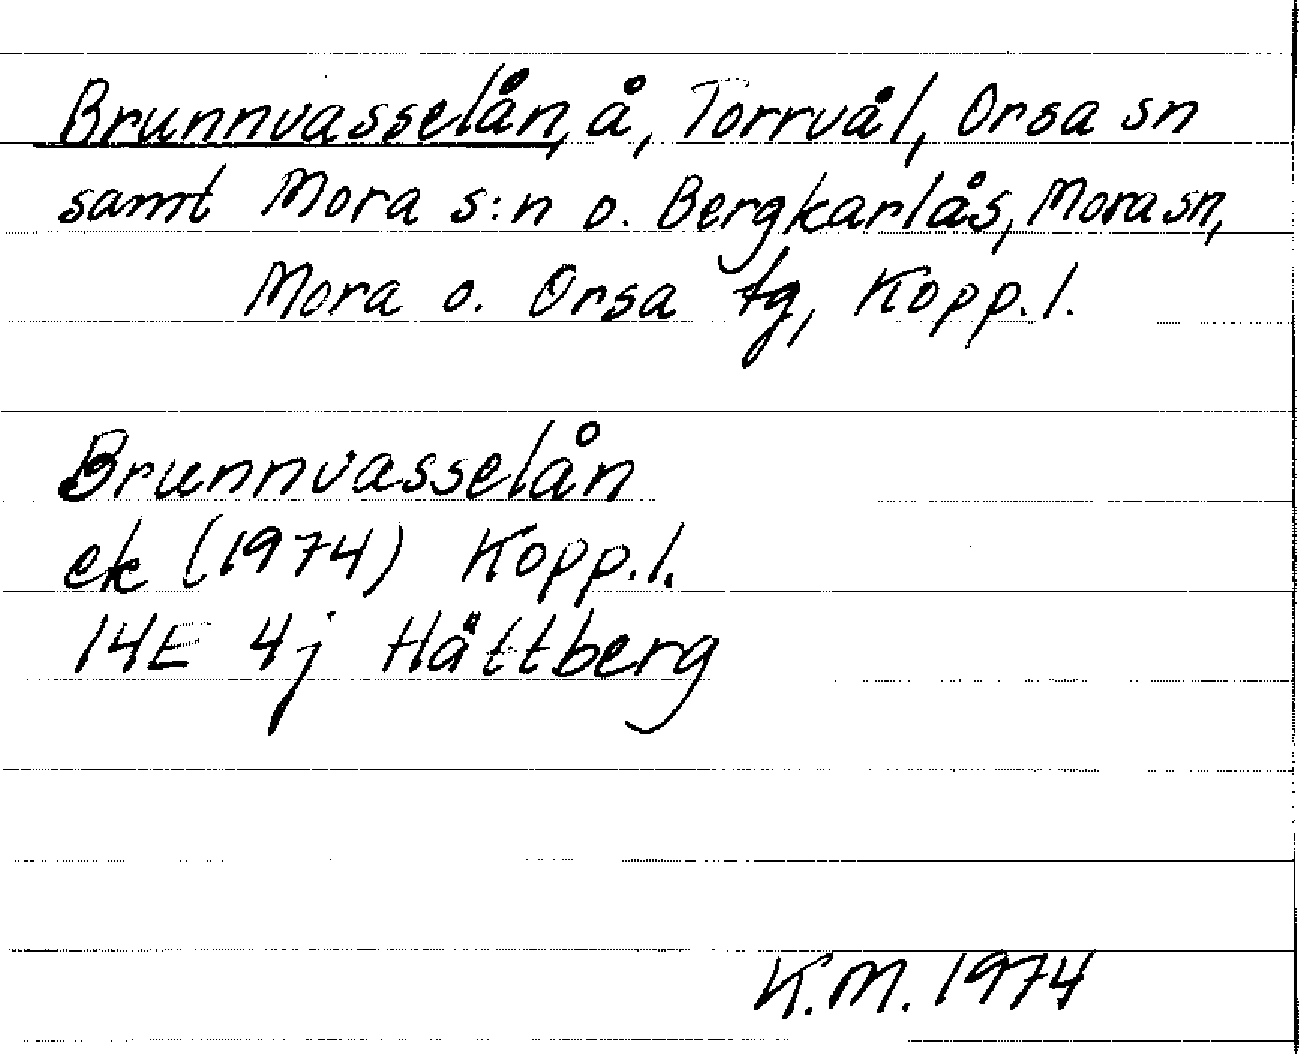 Brunnvasselån, å, Torrvål, Orsa sn
samt Mora s:n o. Bergkarlås, Mora sn,
Mora o. Orsa tg, Kopp.l.
Brunnvasselån
ek (1974) Kopp.l.
14E 4j Håttberg
K.M. 1974